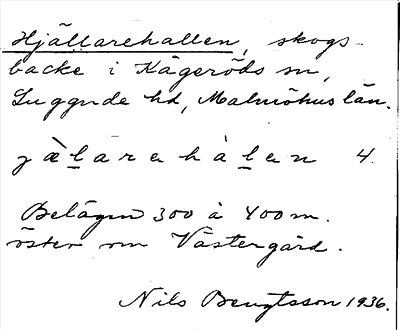 Hjällarehallen, skogs-
backe i Kågeröds sn,
Luggude hd, Malmöhus län.
jæ̀larehàlen 4.
Belägen 300 à 400 m.
öster om Västergård.
Nils Bengtsson 1936.